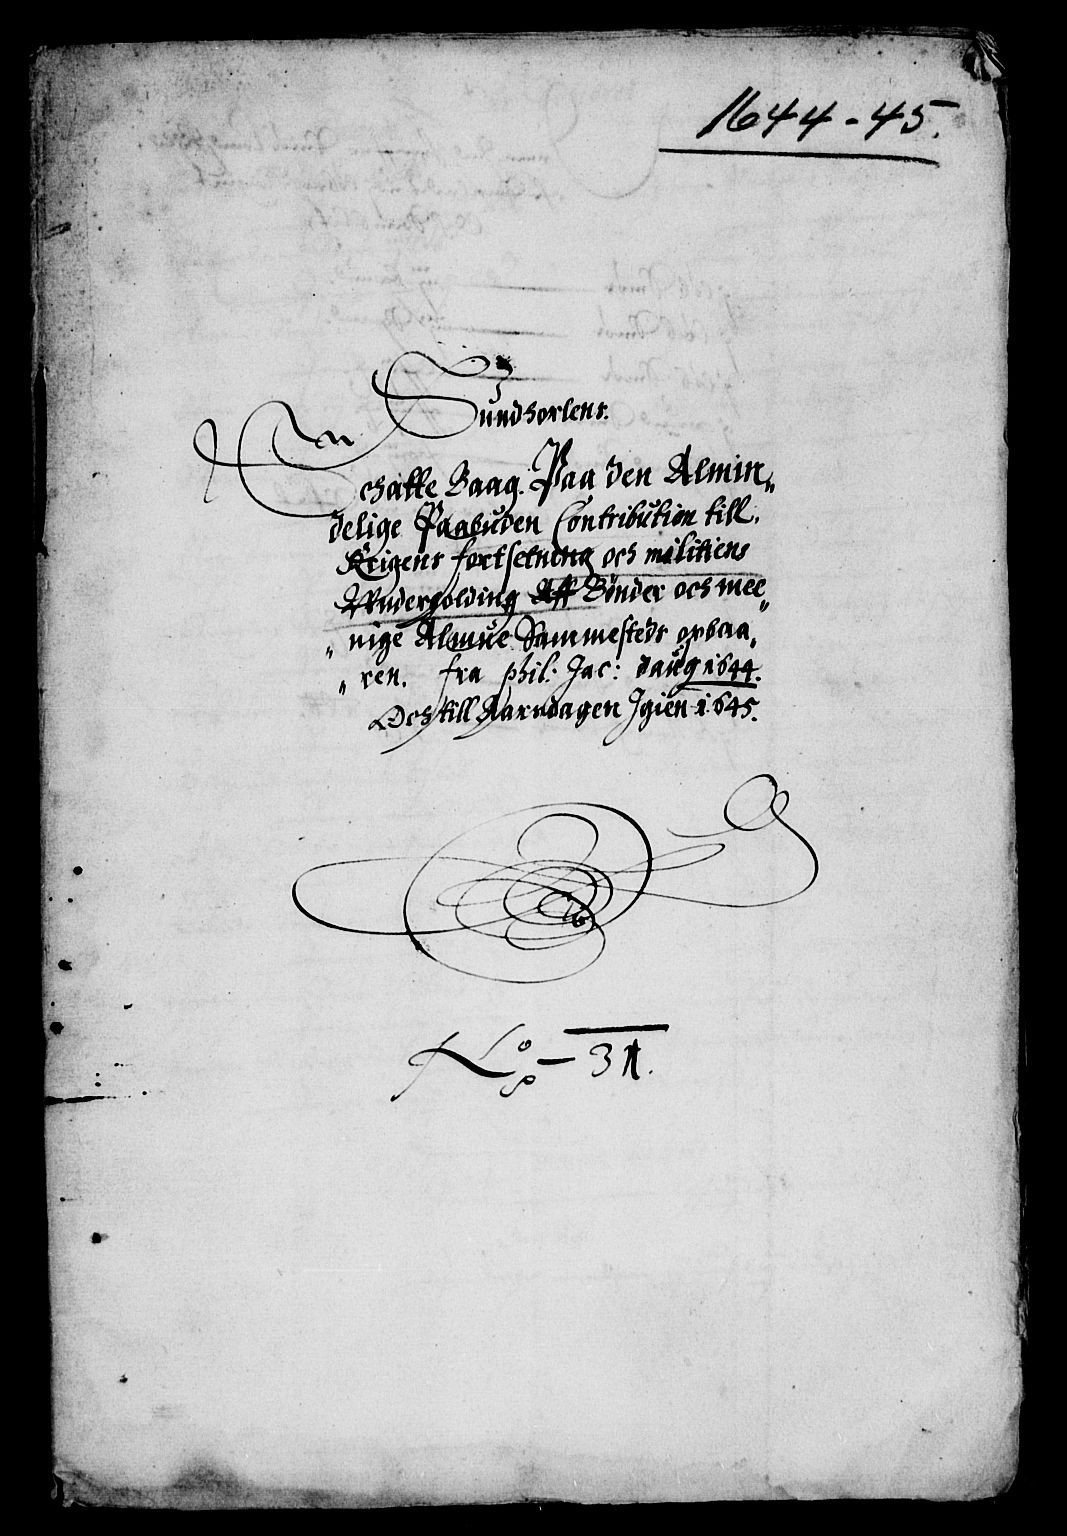 1644-45.
Sundhorlens.
Schatte Baag. Paa den Almin„
delige Paabuden Contribution till
Krigens fortsetning och militiens
Wnderholding Aff Bønder och mee„
„nige Almue Sammestedr opbaa„
„ren. fra phil: Jac: daug 1644.
Och till Aarsdagen Igien 1645.
No – 31.